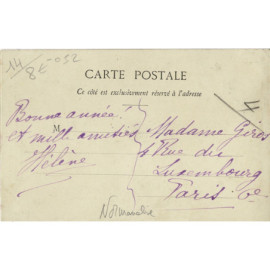 14
8€-052
CARTE POSTALE
Ce côté est exclusivement réservé à l'adresse
4
Bonne année!
et mille amitiés
Hélène
M
Madame Gires
4 Rue du
Luxembourg
Paris
Normandie